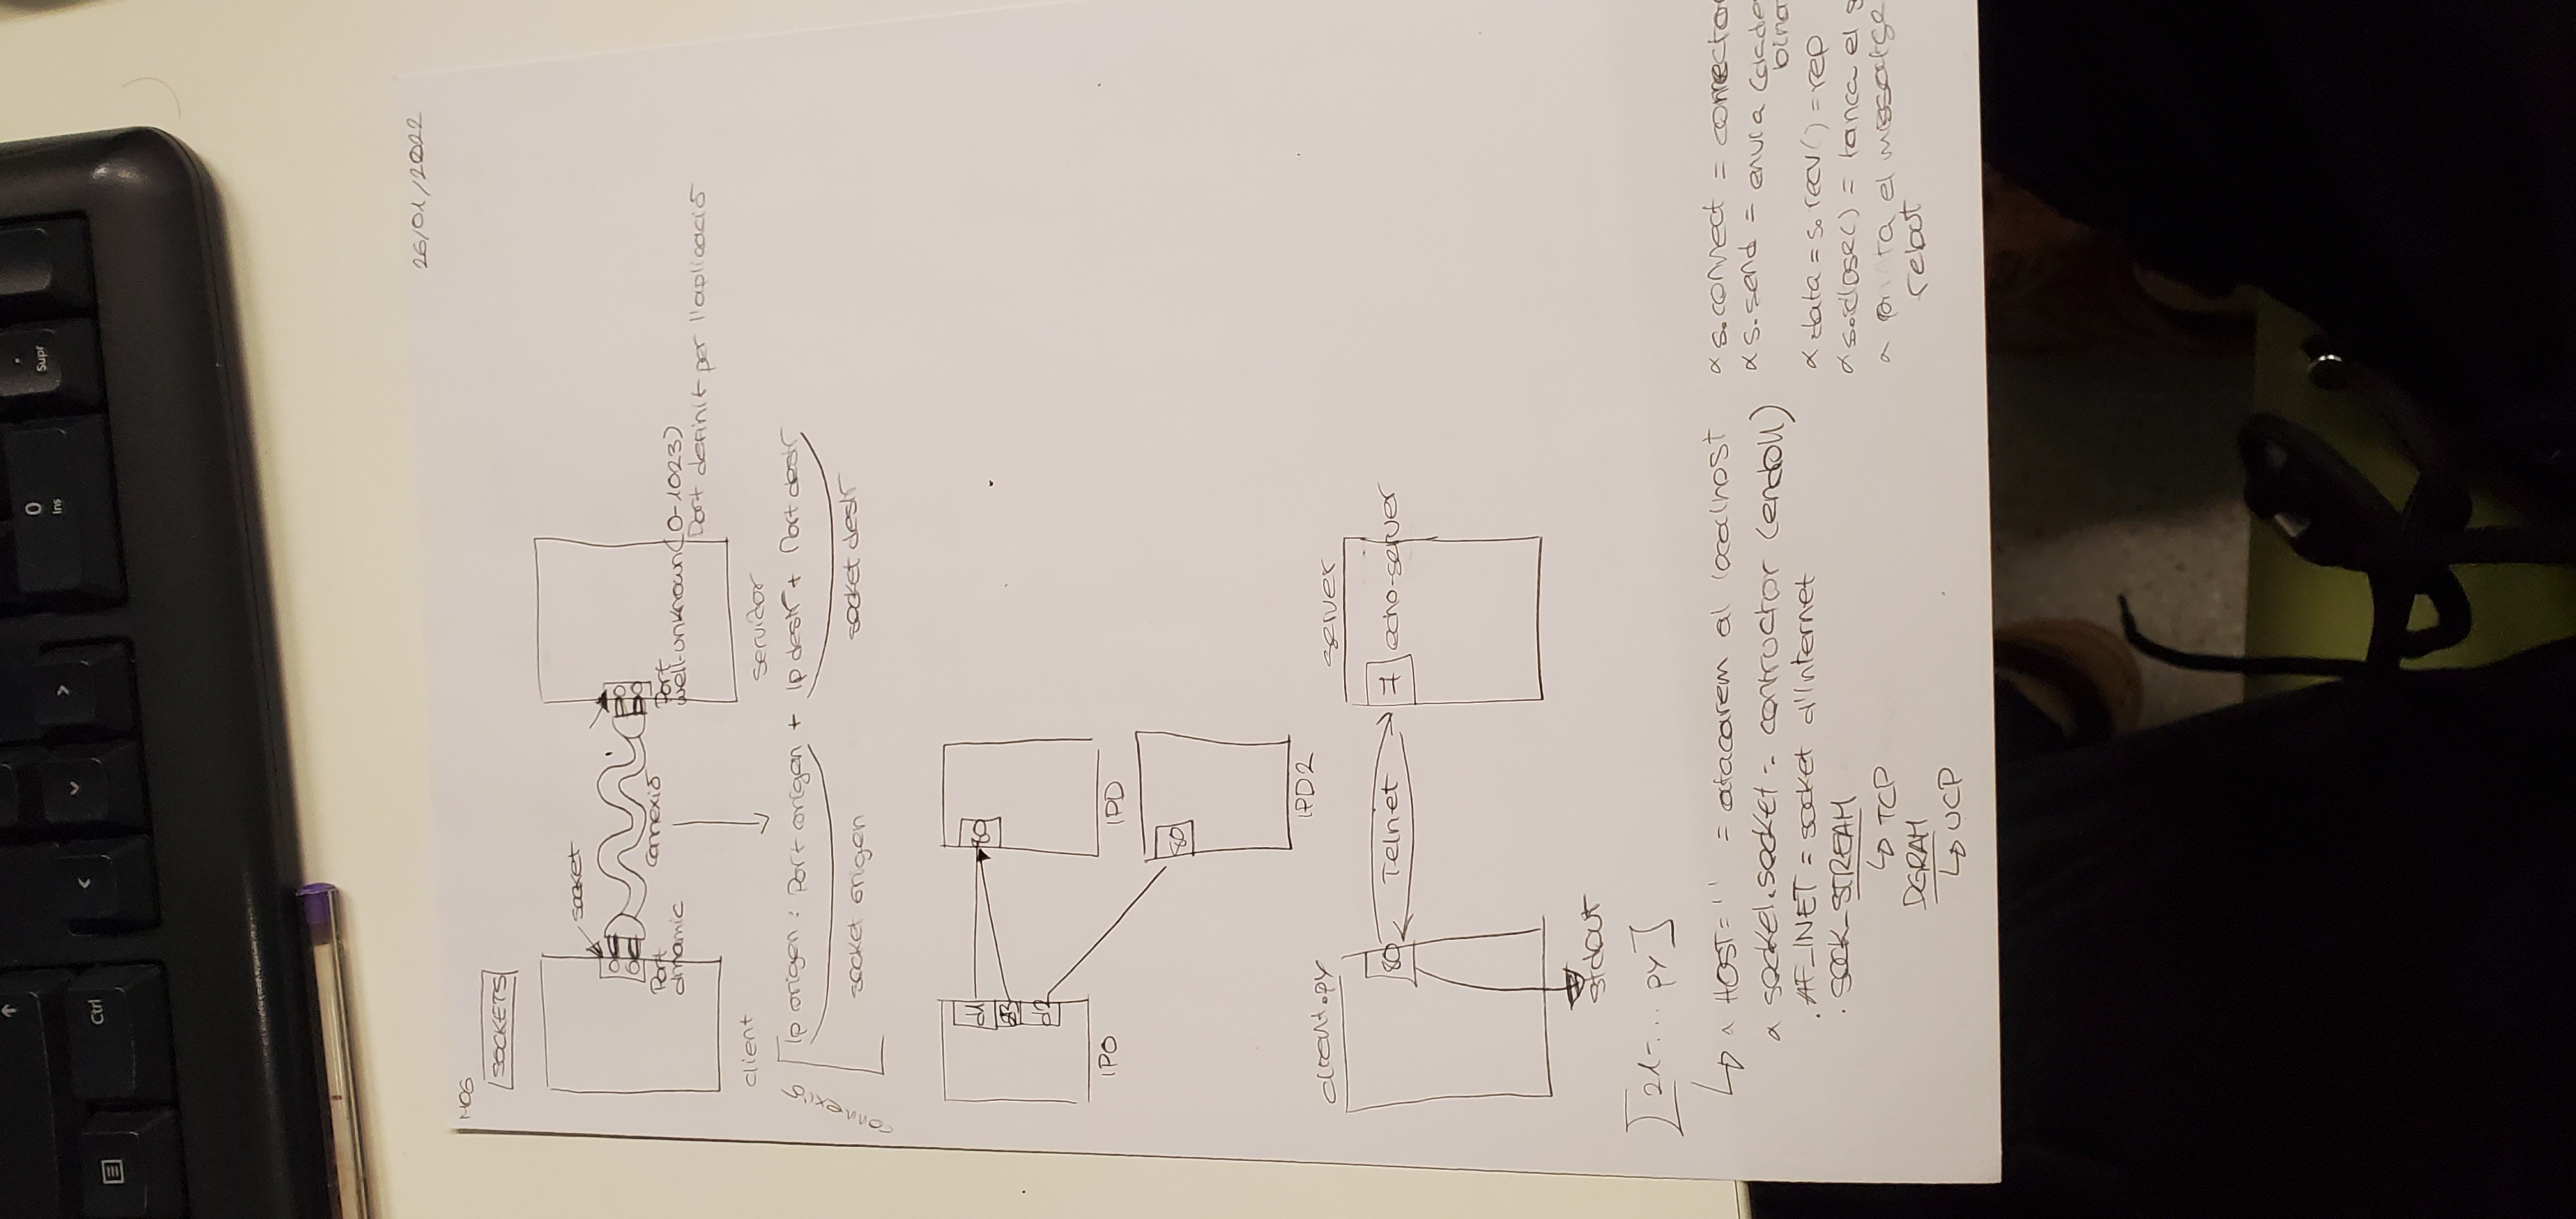 Ctrl
0
Ins
.
Supr
26/01/2022
M06
SOCKETS
socket
connexió
Port
dinamic
Port
well-unknown(0-1023)
Port definit per l'aplicació
client
servidor
connexió
Ip origen : Port origen + Ip destí + Port destí
socket origen
socket destí
d1
80
d3
d2
IPO
IPD
80
IPD2
client.py
server
80
Telnet
7
echo-server
stdout
[21-... py]
HOST= '' = atacarem al localhost
socket.socket = contructor (endoll)
. AF_INET = socket d'Internet
. SOCK_STREAM
↳ TCP
DGRAM
↳ UCP
s.connect = connector
s.send = envia (dade
bina
data = s.recv() = rep
s.close() = tanca el s
el missatge
rebut